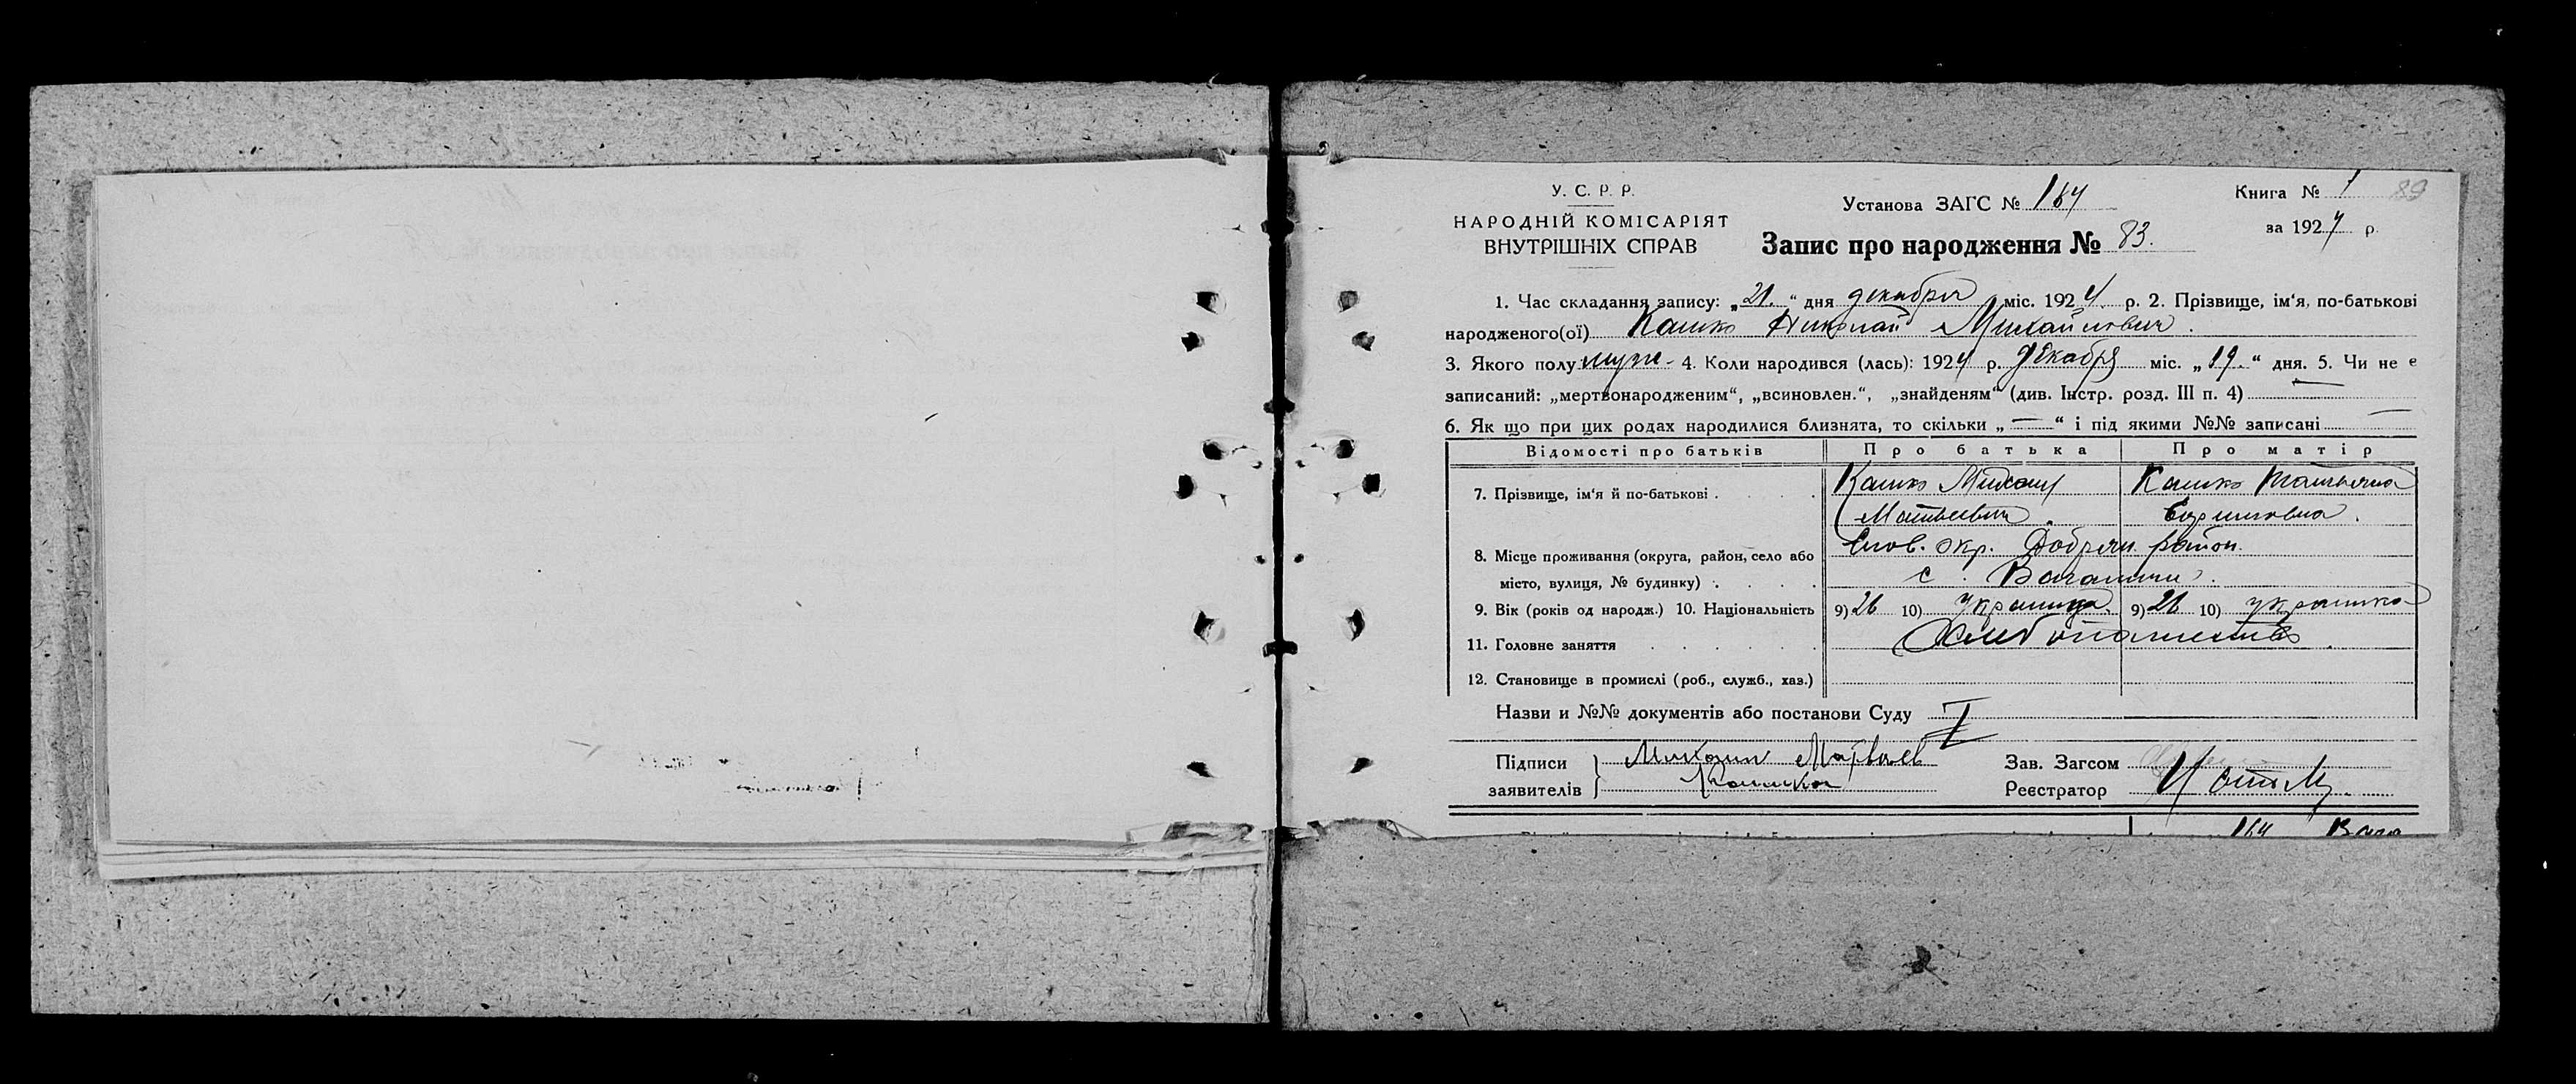 У. С. Р. Р.
НАРОДНІЙ КОМІСАРІЯТ
ВНУТРІШНІХ СПРАВ
Установа ЗАГС № 164
Запис про народження № 83.
Книга № 1 89
за 1924 р.
1. Час складання запису: „21.“ дня декабря міс. 1924 р. 2. Прізвище, ім‘я, по-батькові
народженого(ої) Кашко Николай Михайлович.
3. Якого полу муж- 4. Коли народився (лась): 1924 р. Декабря міс. „19.“ дня. 5. Чи не є
записаний: „мертвонародженим“, „всиновлен.“, „знайденям“ (див. Інстр. розд. III п. 4) —
6. Як що при цих родах народилися близнята, то скільки „—“ і під якими №№ записані —
Відомості про батьків Про батька Про матір
7. Прізвище, ім‘я й по-батькові . . . . Кашко Михаил Кашко Татьяна
Матвеевич.
8. Місце проживання (округа, район, село або окр. район.
місто, вулиця, № будинку) . . . . с.
9. Вік (років од народж.) 10. Національність 9) 26 10) 9) 26 10)
11. Головне заняття . . . . . . Хлебопашество.
12. Становище в промислі (роб., служб., хаз.)
Назви и №№ документів або постанови Суду
Підписи Матвеев
заявителів Кашка
Зав. Загсом
Реєстратор
164 Вага